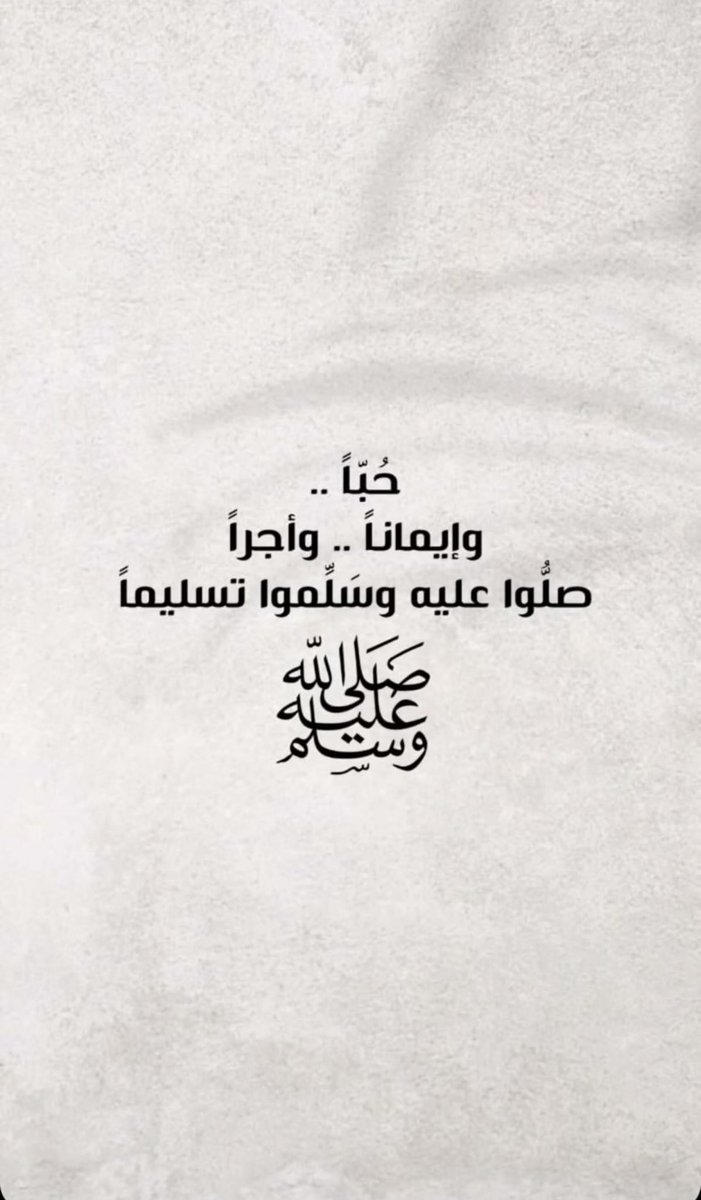 حُبّاً ..
وإيماناً .. وأجراً
صلُّوا عليه وسَلِّموا تسليماً
صَلَى اللّٰه
عليه
وسلم